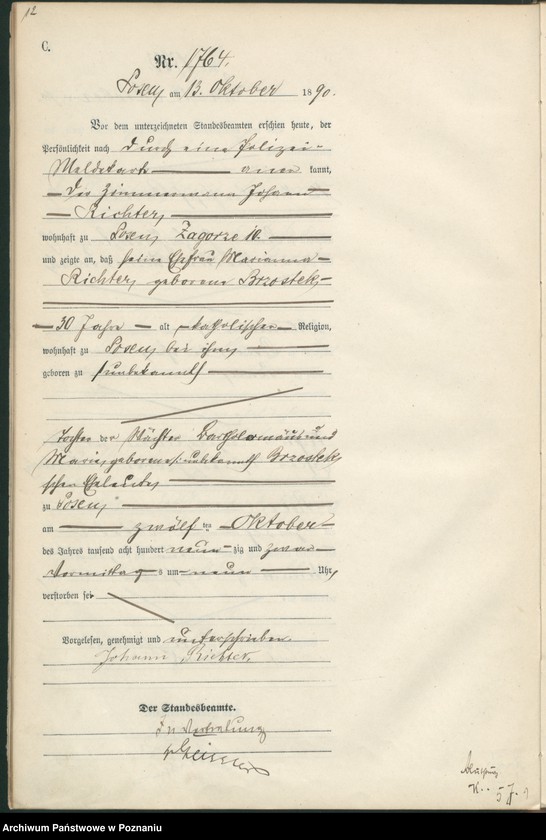 12
C.
Nr. 1764.
Posen, am 13. Oktober 1890.
Vor dem unterzeichneten Standesbeamten erschien heute, der
Persönlichkeit nach durch eine Polizei-
Meldekarte anerkannt,
der Zimmermann Johann
Richter,
wohnhaft zu Posen, Zagorze 10.
und zeigte an, daß seine Ehefrau Marianna
Richter, geborene Brzostek,
30 Jahre alt, katholischer Religion,
wohnhaft zu Posen, bei ihm,
geboren zu (unbekannt)
Tochter der Wächter Bartholomäus und
Marie, geborene (unbekannt) Brzostek
schen Eheleute,
zu Posen,
am zwölften Oktober
des Jahres tausend acht hundert neunzig und zwar
Vormittags um neun Uhr,
verstorben sei.
Vorgelesen, genehmigt und unterschrieben
Johann Richter,
Der Standesbeamte.
In Vertretung
57.
Archiwum Państwowe w Poznaniu